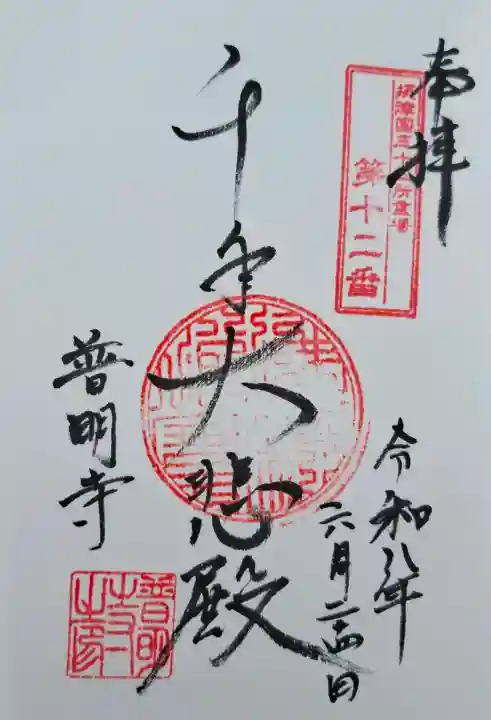 奉拝
摂津国三十三所霊場
第十二番
千手大悲殿
令和八年
六月二十四日
普明寺
普明寺之印